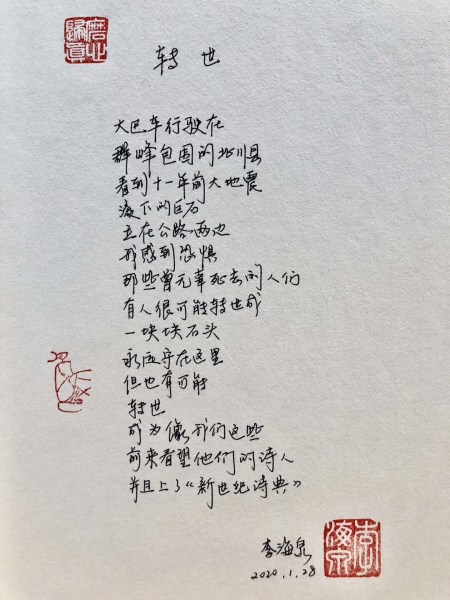 转世
大巴车行驶在
群峰包围的北川县
看到十一年前大地震
滚下的巨石
立在公路两边
我感到恐惧
那些曾无辜死去的人们
有人很可能转世成
一块块石头
永远守在这里
但也有可能
转世
成为像我们这些
前来看望他们的诗人
并且上了《新世纪诗典》
李海泉
2020.1.28